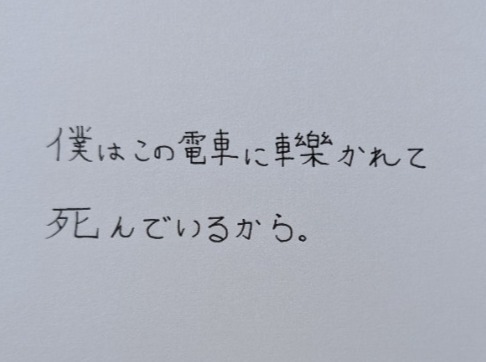 僕はこの電車に轢かれて
死んでいるから。